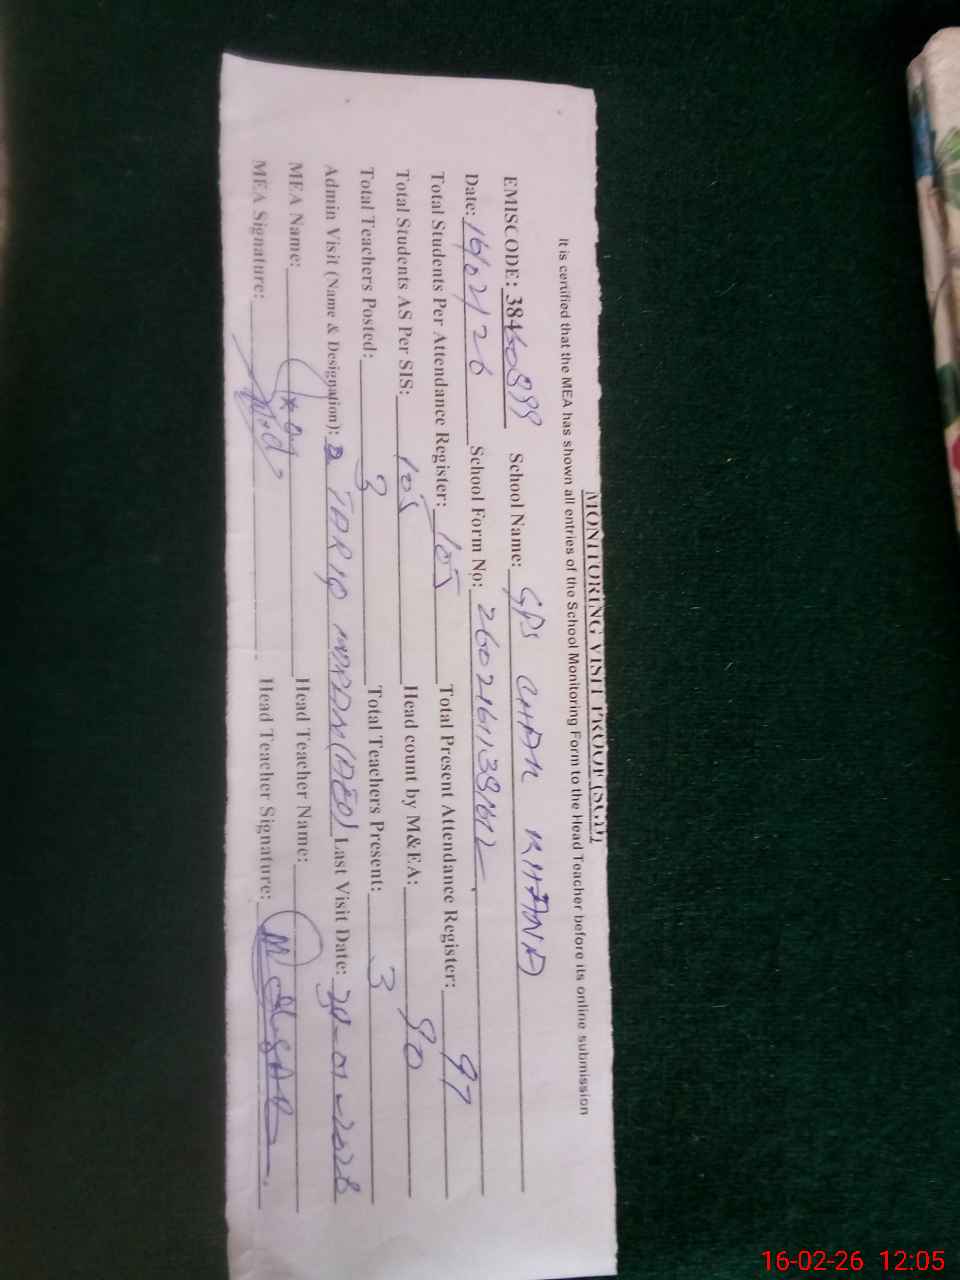 MONITORING VISIT PROOF (SGD)
It is certified that the MEA has shown all entries of the School Monitoring Form to the Head Teacher before its online submission
EMISCODE: 384 School Name: GPS CHAK KHANA
Date: 16/02/26 School Form No:
Total Students Per Attendance Register: 105 Total Present Attendance Register: 97
Total Students AS Per SIS: 105 Head count by M&EA: 90
Total Teachers Posted: 3 Total Teachers Present: 3
Admin Visit (Name & Designation): TARIQ (AEO) Last Visit Date: 30-01-2026
MEA Name: Head Teacher Name:
MEA Signature: Head Teacher Signature:
16-02-26 12:05